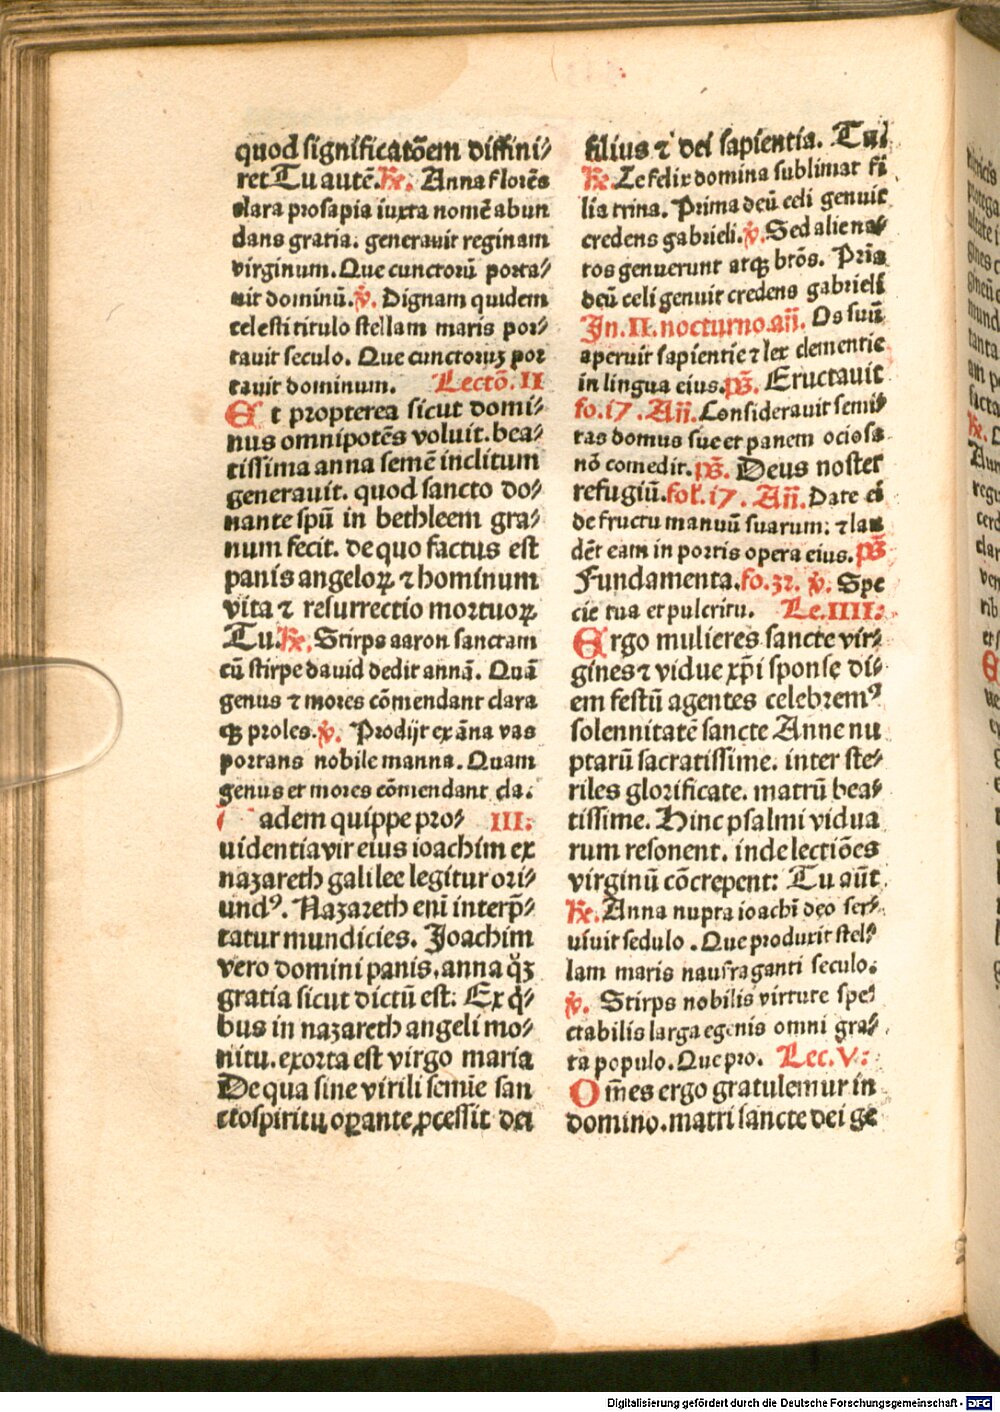 quod significatōem diffini⸗
ret Tu autē. R̃. Anna florēs
clara prosapia iuxta nomē abun
dans gratia. generauit reginam
virginum. Que cunctorū porta⸗
uit dominū. v̇. Dignam quidem
celesti titulo stellam maris por⸗
tauit seculo. Que cunctoruꝫ por
tauit dominum. Lectō. II
Et propterea sicut domi⸗
nus omnipotēs voluit. bea⸗
tissima anna semē inclitum
generauit. quod sancto do⸗
nante spū in bethleem gra⸗
num fecit. de quo factus est
panis angeloꝝ ⁊ hominum
vita ⁊ resurrectio mortuoꝝ
Tu. R̃. Stirps aaron sanctam
cū stirpe dauid dedit annā. Quā
genus ⁊ mores cōmendant clara
qꝫ proles. v̇. Prodijt ex āna vas
portans nobile manna. Quam
genus et mores cōmendant cla.
adem quippe pro⸗ III:
uidentia vir eius ioachim ex
nazareth galilee legitur ori⸗
undꝰ. Nazareth eni interp̄⸗
tatur mundicies. Joachim
vero domini panis. anna qꝫ̄
gratia sicut dictū est. Ex q̇⸗
bus in nazareth angeli mo⸗
nitu. exorta est virgo maria
De qua sine virili semīe san
ctospiritu oꝑante ꝓcessit dei
filius ⁊ dei sapientia. Tu.
R̃. Le felix domina sublimat fi
lia trina. Prima deū celi genuit
credens gabrieli. v̇. Sed aliena⸗
tos genuerunt atqꝫ btōs. Priā
deū celi genuit credens gabrieli
Jn. II. nocturno. añ. Os suū
aperuit sapientie ⁊ lex clementie
in lingua eius. pš. Eructauit
fo. i7. Añ. Considerauit semi⸗
tas domus sue et panem ociosa
nō comedit. pš. Deus noster
refugiū. fol. i7. Añ. Date ei
de fructu manuū suarum: ⁊ lau
dēt eam in portis opera eius. pš
Fundamenta. fo. 32. v̇. Spe
cie tua et pulcritu. Le. IIII:
Ergo mulieres sancte vir⸗
gines ⁊ vidue xp̄i sponse di⸗
em festū agentes celebremꝰ
solennitatē sancte Anne nu
ptarū sacratissime. inter ste⸗
riles glorificate. matrū bea⸗
tissime. Hinc psalmi vidua
rum resonent. inde lectiōes
virginū cōcrepent: Tu aūt
R̃. Anna nupta ioachī deo ser⸗
uiuit sedulo. Que produxit stel⸗
lam maris naufraganti seculo.
v̇. Stirps nobilis virtute spe⸗
ctabilis larga egenis omni gra⸗
ta populo. Que pro. Lec. V:
Om̄es ergo gratulemur in
domino. matri sancte dei ge
Digitalisierung gefördert durch die Deutsche Forschungsgemeinschaft - DFG